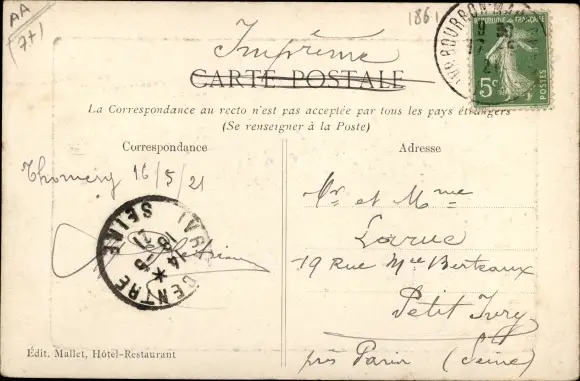 AA
7+1
1861
Imprimé
CARTE POSTALE
La Correspondance au recto n'est pas acceptée par tous les pays étrangers
(Se renseigner à la Poste)
REPUBLIQUE FRANÇAISE
5c
POSTES
Correspondance
Thomery 16/5/21
IVRY CENTRE
SEINE
Adresse
Mr et Mme
Larue
19 Rue Mce Berteaux
Petit Ivry
près Paris (Seine)
Edit. Mallet, Hôtel-Restaurant